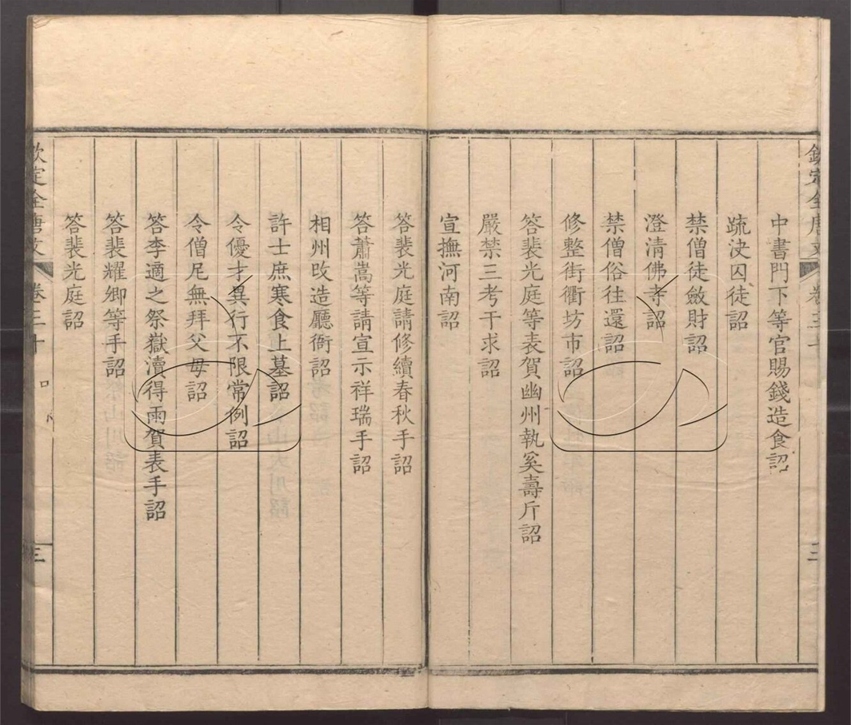 欽定全唐文 卷三十 三
中書門下等官賜錢造食詔
疏決囚徒詔
禁僧徒斂財詔
澄清佛寺詔
禁僧俗往還詔
修整街衢坊市詔
答裴光庭等表賀幽州執奚壽斤詔
嚴禁三考干求詔
宣撫河南詔
答裴光庭請修續春秋手詔
答蕭嵩等請宣示祥瑞手詔
相州改造廳衙詔
許士庶寒食上墓詔
令優才異行不限常例詔
令僧尼無拜父母詔
答李適之祭嶽瀆得雨賀表手詔
答裴耀卿等手詔
答裴光庭詔
欽定全唐文 卷三十 三